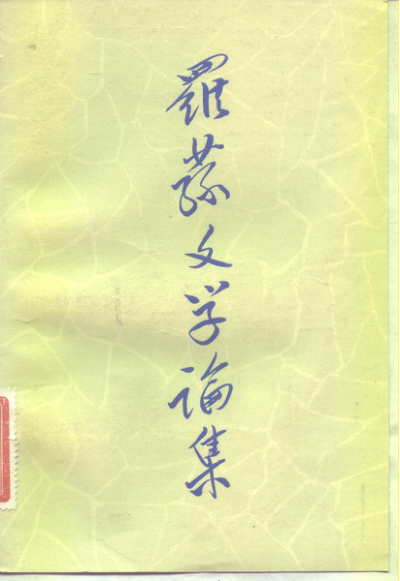 羅蓀文学論集